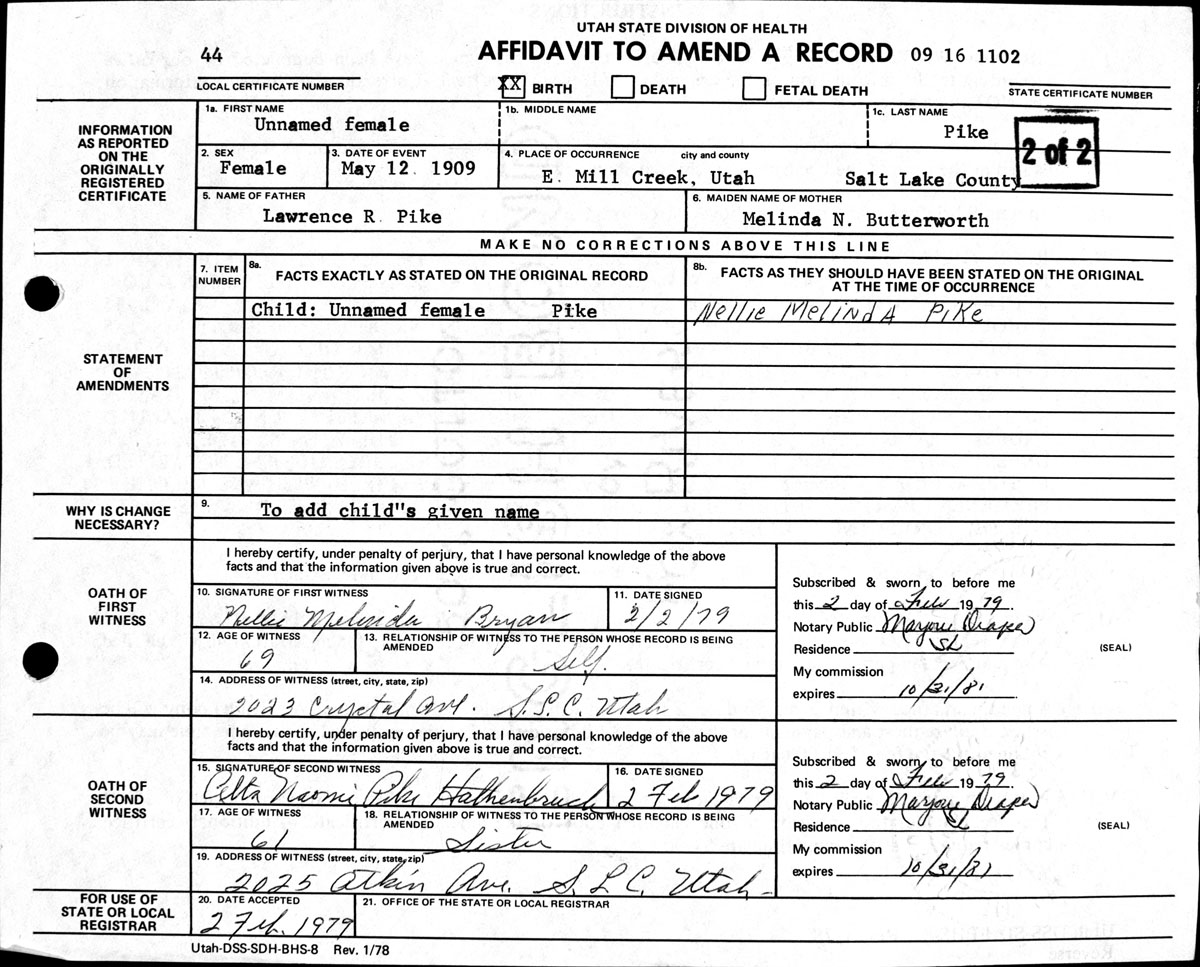 UTAH STATE DIVISION OF HEALTH
44 AFFIDAVIT TO AMEND A RECORD 09 16 1102
LOCAL CERTIFICATE NUMBER XX BIRTH DEATH FETAL DEATH STATE CERTIFICATE NUMBER
INFORMATION AS REPORTED ON THE ORIGINALLY REGISTERED CERTIFICATE
1a. FIRST NAME 1b. MIDDLE NAME 1c. LAST NAME
Unnamed female Pike
2 of 2
2. SEX 3. DATE OF EVENT 4. PLACE OF OCCURRENCE city and county
Female May 12. 1909 E. Mill Creek, Utah Salt Lake County
5. NAME OF FATHER 6. MAIDEN NAME OF MOTHER
Lawrence R. Pike Melinda N. Butterworth
MAKE NO CORRECTIONS ABOVE THIS LINE
STATEMENT OF AMENDMENTS
7. ITEM NUMBER 8a. FACTS EXACTLY AS STATED ON THE ORIGINAL RECORD 8b. FACTS AS THEY SHOULD HAVE BEEN STATED ON THE ORIGINAL
AT THE TIME OF OCCURRENCE
Child: Unnamed female Pike Nellie Melinda Pike
WHY IS CHANGE NECESSARY?
9. To add child"s given name
OATH OF FIRST WITNESS
I hereby certify, under penalty of perjury, that I have personal knowledge of the above
facts and that the information given above is true and correct.
10. SIGNATURE OF FIRST WITNESS 11. DATE SIGNED
Nellie Melinda Bryan 2/2/79
12. AGE OF WITNESS 13. RELATIONSHIP OF WITNESS TO THE PERSON WHOSE RECORD IS BEING
AMENDED
69 Self.
14. ADDRESS OF WITNESS (street, city, state, zip)
2023 Crystal Ave. S.L.C. Utah
Subscribed & sworn to before me
this 2 day of Feb 1979.
Notary Public Marjorie Draper
Residence SL
(SEAL)
My commission
expires 10/31/81
OATH OF SECOND WITNESS
I hereby certify, under penalty of perjury, that I have personal knowledge of the above
facts and that the information given above is true and correct.
15. SIGNATURE OF SECOND WITNESS 16. DATE SIGNED
Naomi Pike 2 Feb 1979
17. AGE OF WITNESS 18. RELATIONSHIP OF WITNESS TO THE PERSON WHOSE RECORD IS BEING
AMENDED
61 Sister
19. ADDRESS OF WITNESS (street, city, state, zip)
2025 Atkin Ave. S.L.C. Utah-
Subscribed & sworn to before me
this 2 day of Feb 1979.
Notary Public Marjorie Draper
Residence SL
(SEAL)
My commission
expires 10/31/81
FOR USE OF STATE OR LOCAL REGISTRAR
20. DATE ACCEPTED 21. OFFICE OF THE STATE OR LOCAL REGISTRAR
2 Feb. 1979
Utah-DSS-SDH-BHS-8 Rev. 1/78